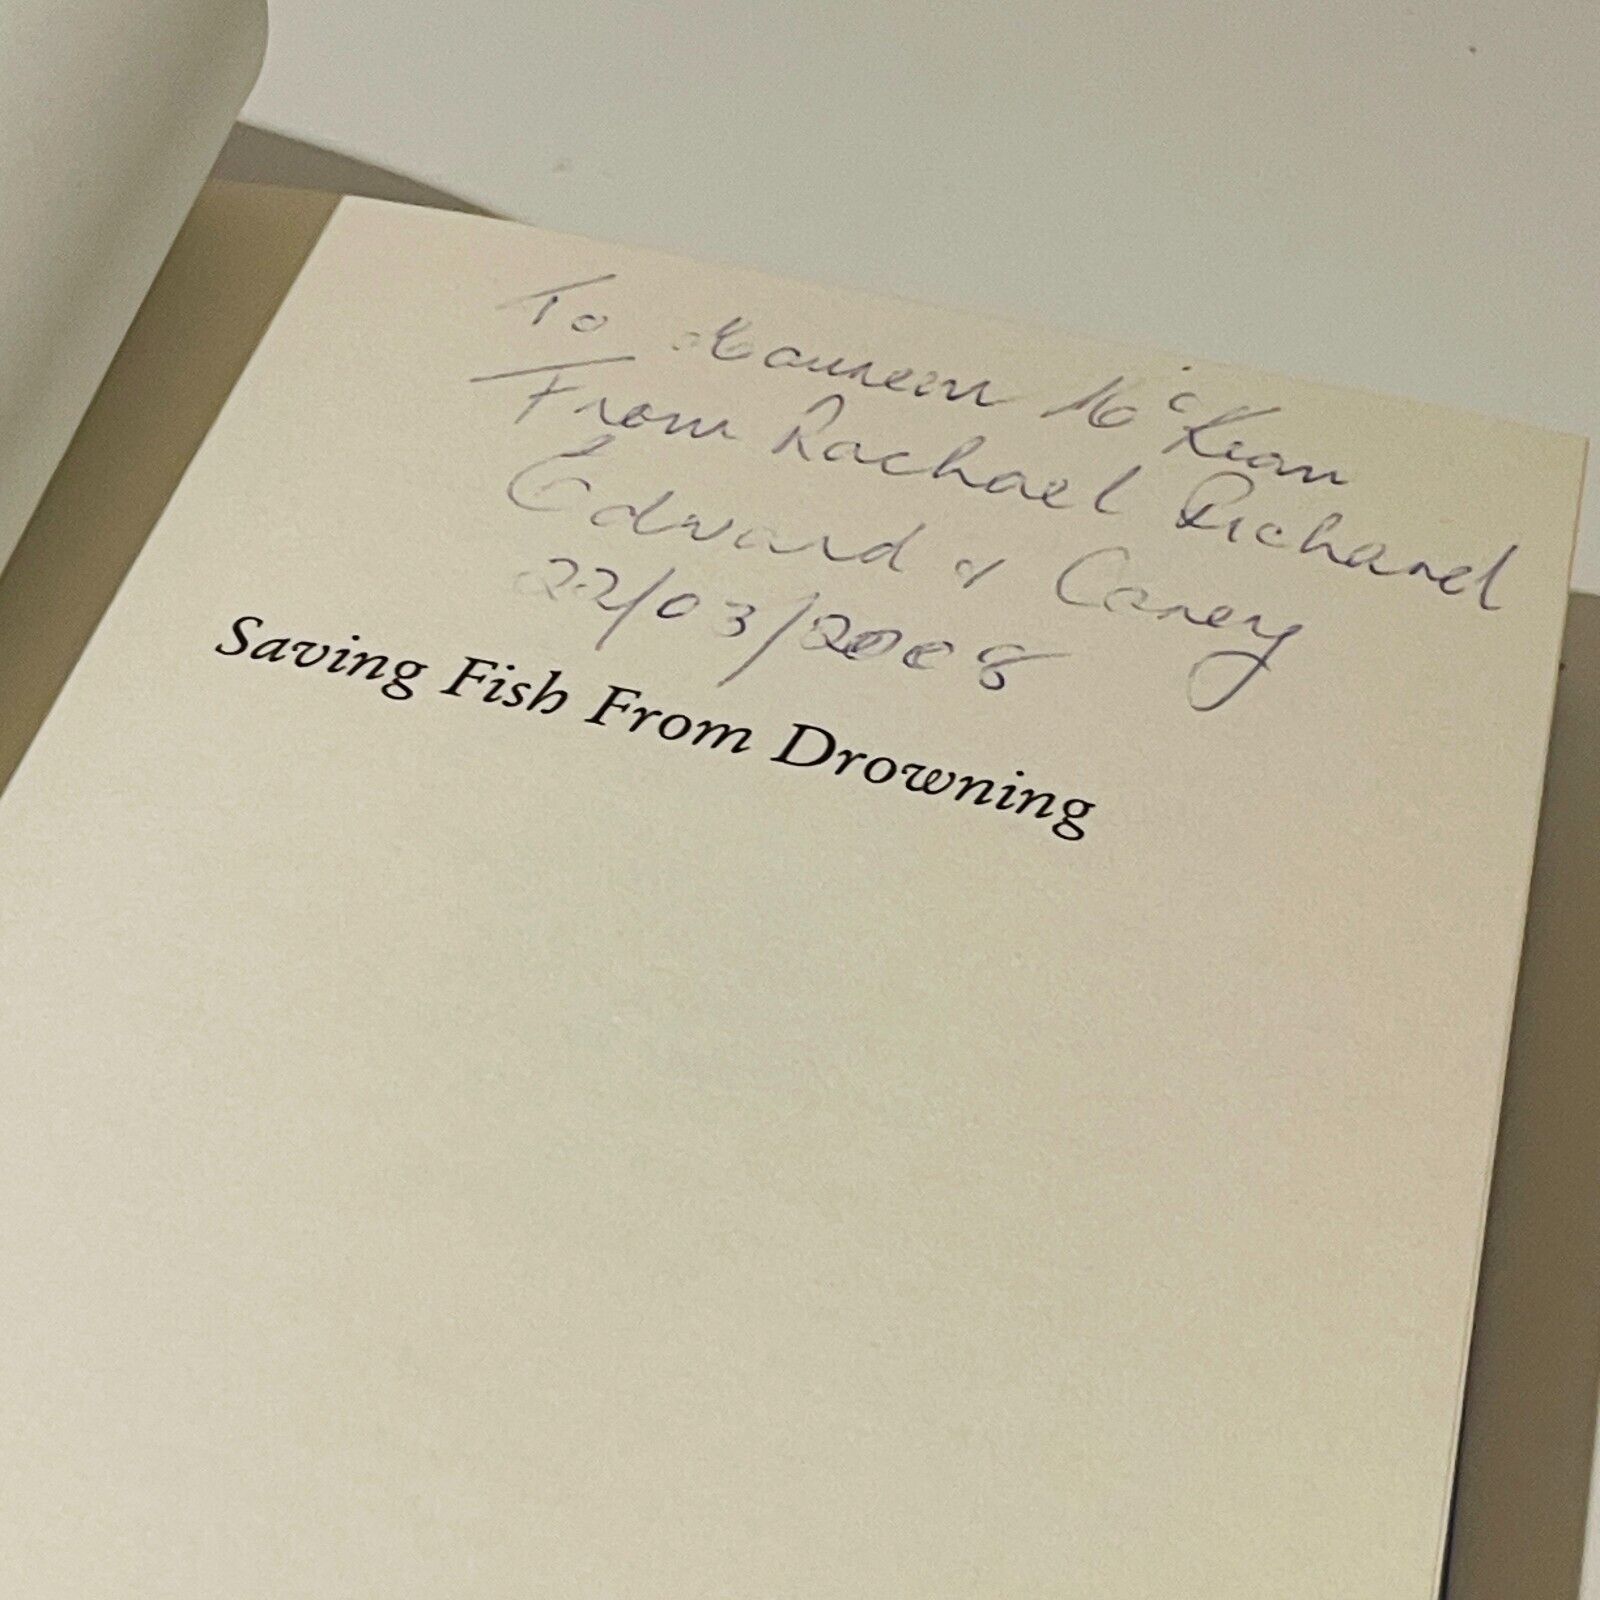 To Maureen McKean
From Rachael Richard
Edward & Carey
22/03/2008
Saving Fish From Drowning